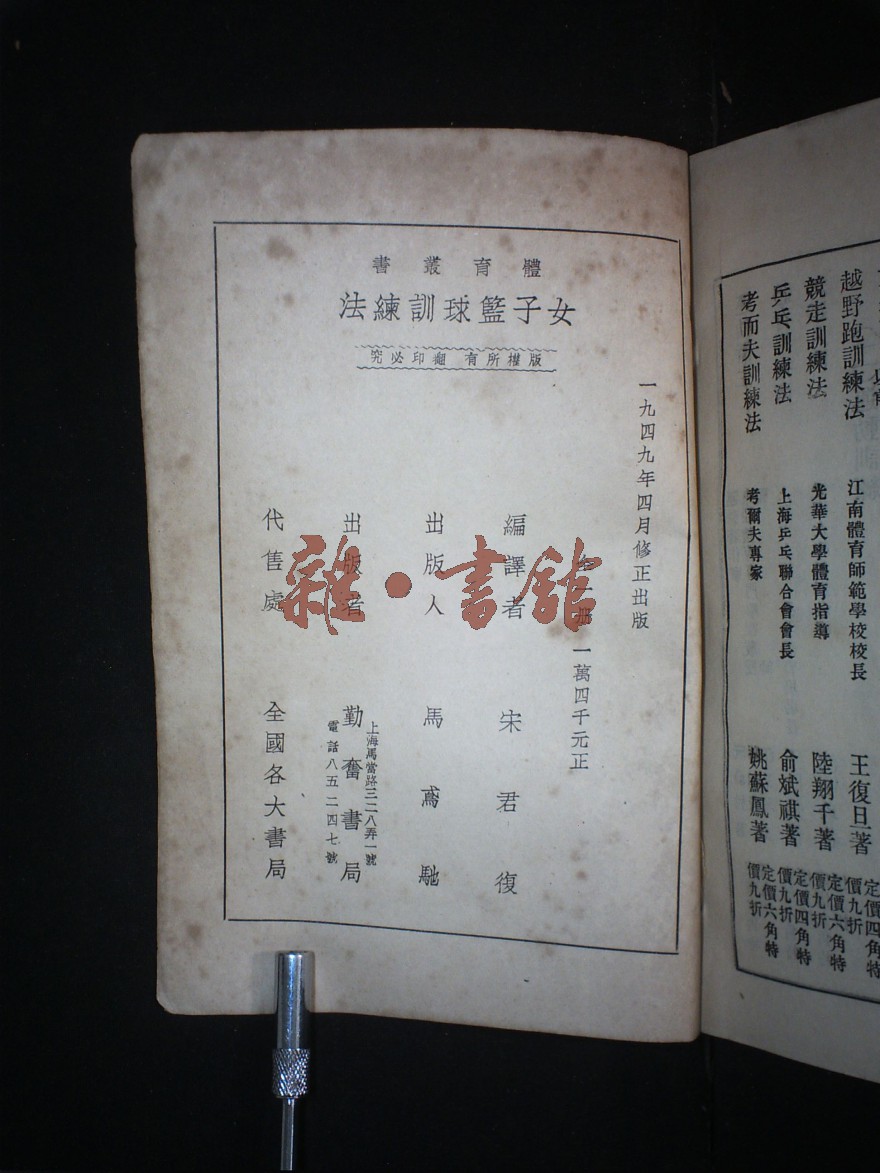 體育叢書
女子籃球訓練法
版權所有 翻印必究
一九四九年四月修正出版
全一冊 一萬四千元正
編譯者 宋君復
出版人 馬鳶馳
出版者 勤奮書局
上海馬當路三二八弄一號
電話八五二四七號
代售處 全國各大書局
雜·書館
越野跑訓練法 江南體育師範學校校長 王復旦著 定價四角特價九折
競走訓練法 光華大學體育指導 陸翔千著 定價六角特價九折
乒乓訓練法 上海乒乓聯合會會長 俞斌祺著 定價四角特價九折
考而夫訓練法 考爾夫專家 姚蘇鳳著 定價六角特價九折